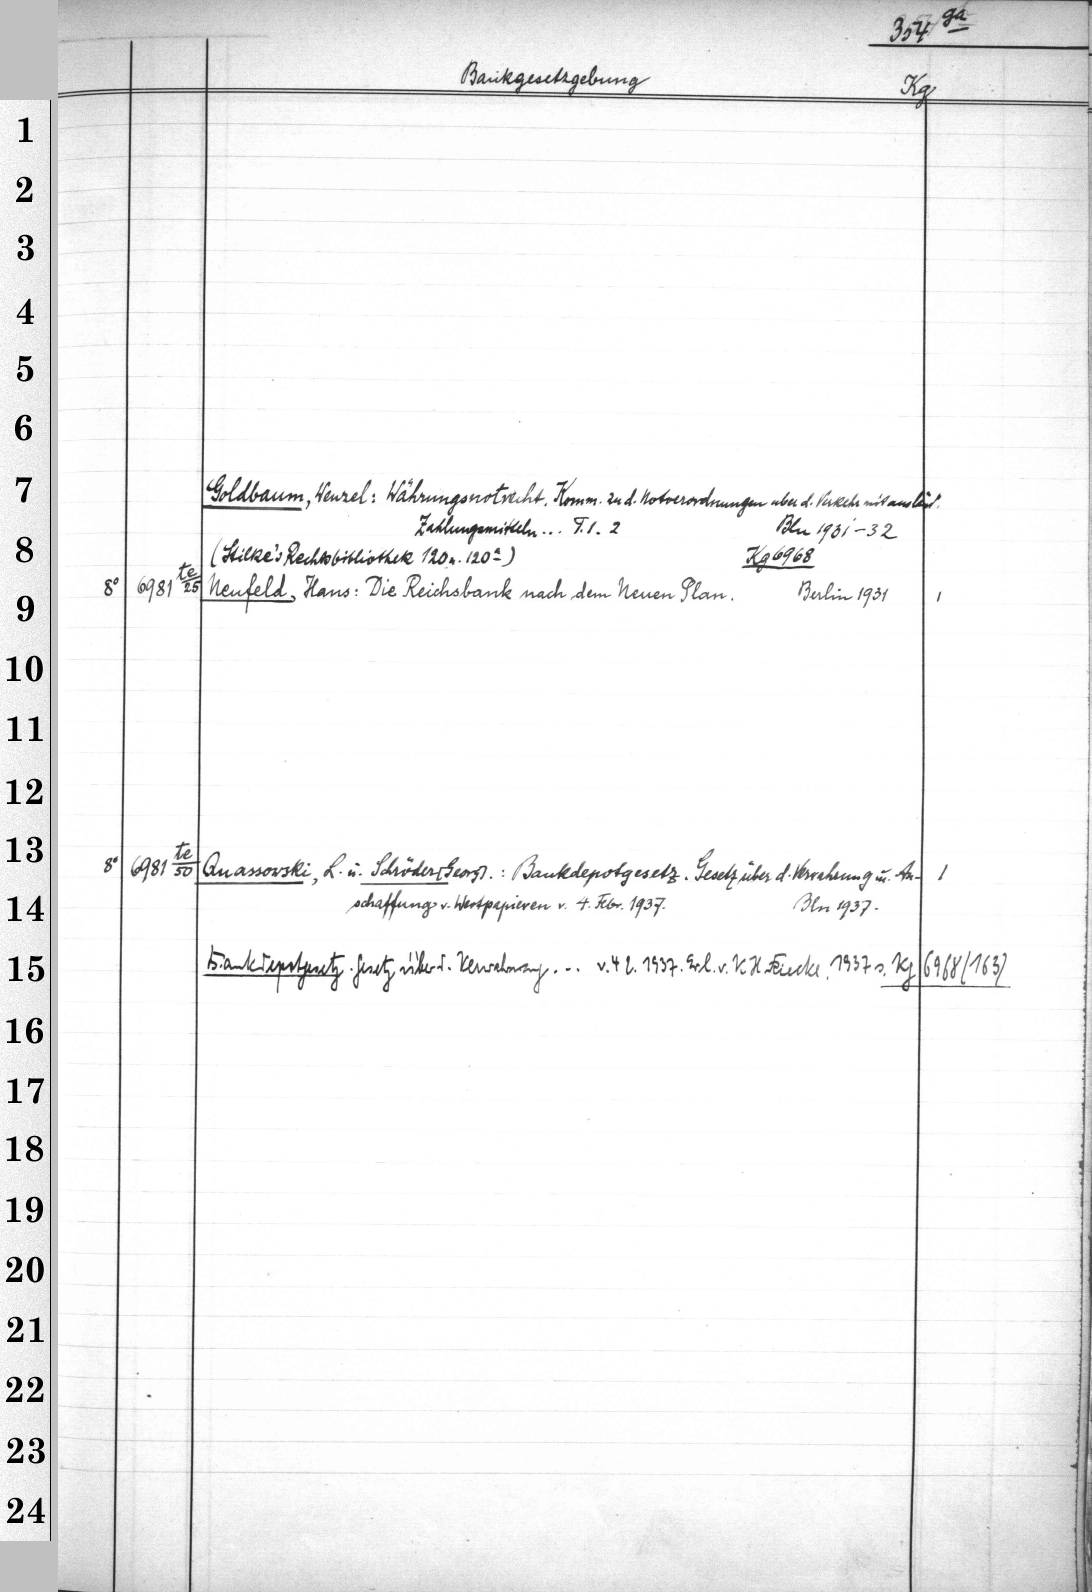 354 ga
Bankgesetzgebung Kg
1
2
3
4
5
6
7 Goldbaum, Wenzel: Währungsnotrecht. Komm. zu d. Notverordnungen über d. Verkehr mit ausländ.
Zahlungsmitteln... T.1.2 Bln 1931-32
8 (Stilke's Rechtsbibliothek 120 u. 120a) Kg 6968
9 8° 6981 te/25 Neufeld, Hans: Die Reichsbank nach dem Neuen Plan. Berlin 1931 1
10
11
12
13 8° 6981 te/50 Quassowski, L. u. Schröder[, Georg]. : Bankdepotgesetz. Gesetz über d. Verwahrung u. An- 1
14 schaffung v. Wertpapieren v. 4. Febr. 1937. Bln 1937.
15 Bankdepotgesetz. Gesetz über d. Verwahrung ... v. 4 2. 1937. Erl. v. K H 1937 s. Kg 6968(163)
16
17
18
19
20
21
22
23
24